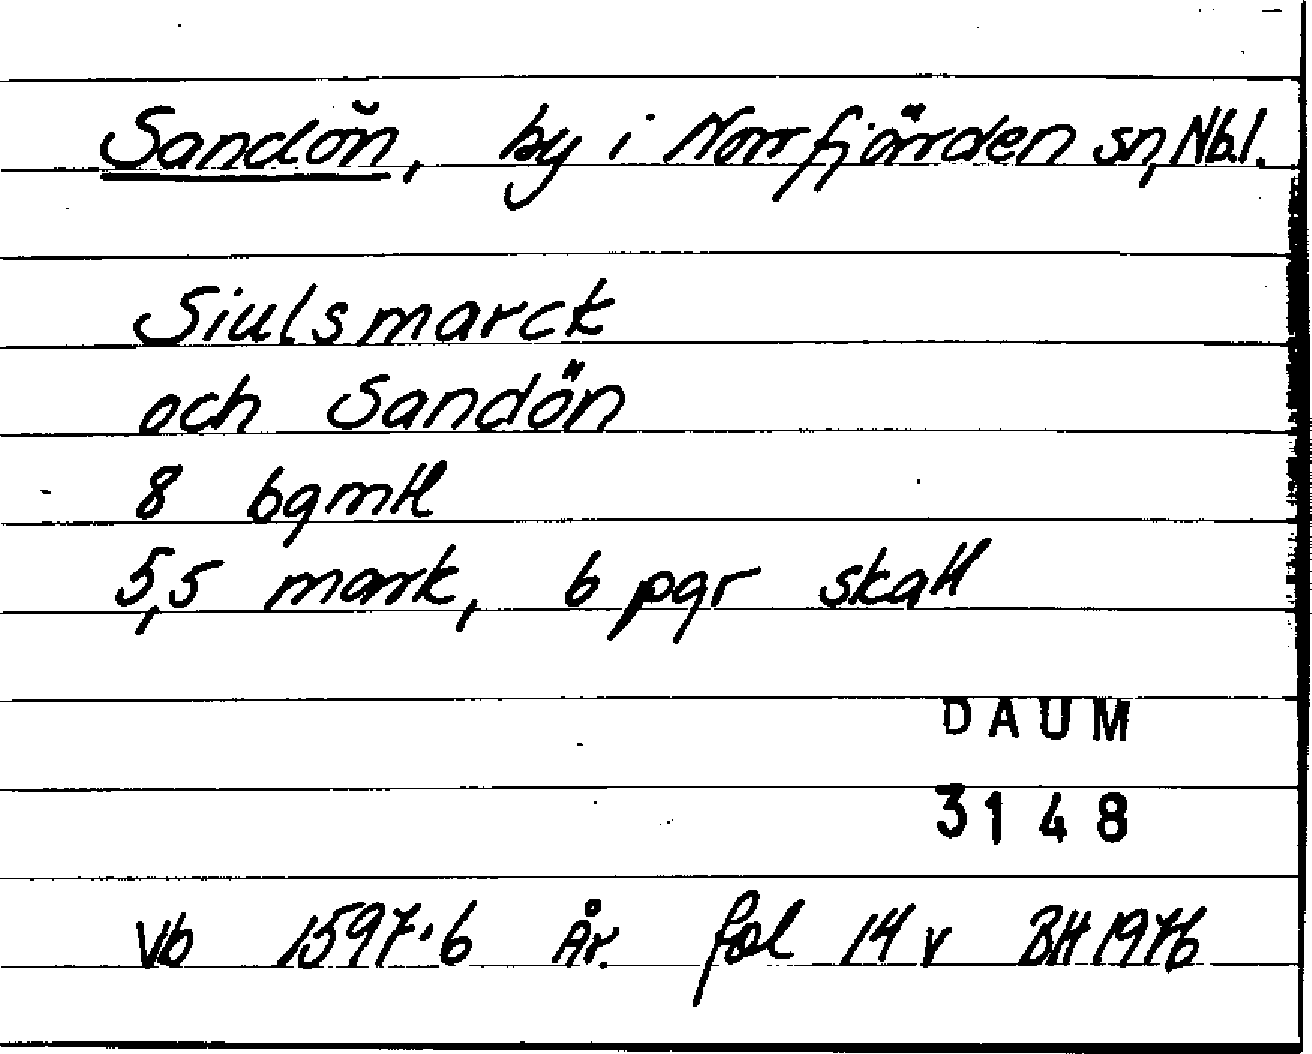 Sandön, by i Norrfjärden sn, Nb.l.
Siulsmarck
och Sandön
8 bgmtl
5,5 mark, 6 pgr skatt
DAUM
3148
Vb 1597:6 År. fol 14 v BH 1976